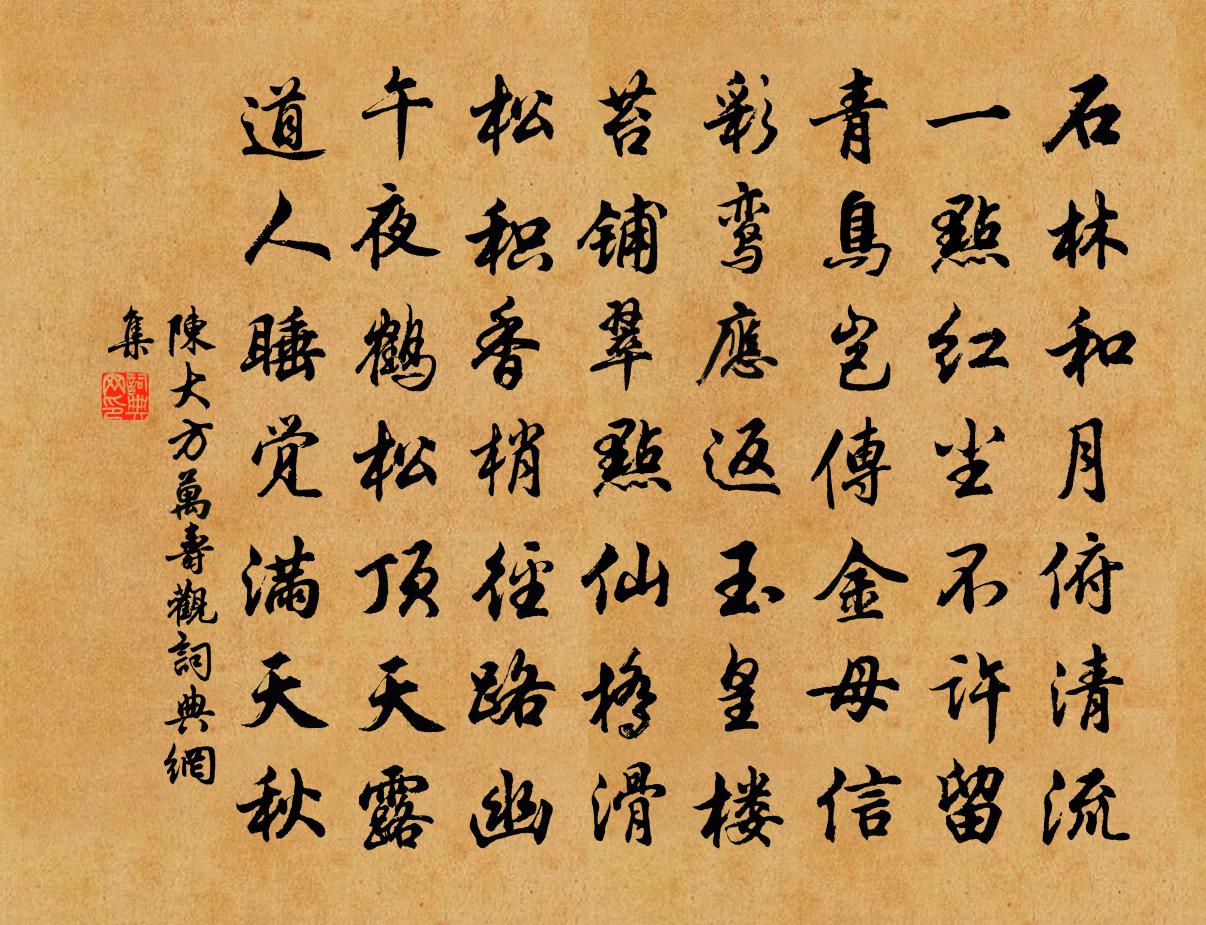 石林和月俯清流
一點红尘不許留
青鳥岂傳金母信
彩鸾應返玉皇楼
苔铺翠點仙橋滑
松积香梢径路幽
午夜鹤松顶天露
道人睡觉满天秋
陳大方萬壽觀詞典網
集
詞典网印